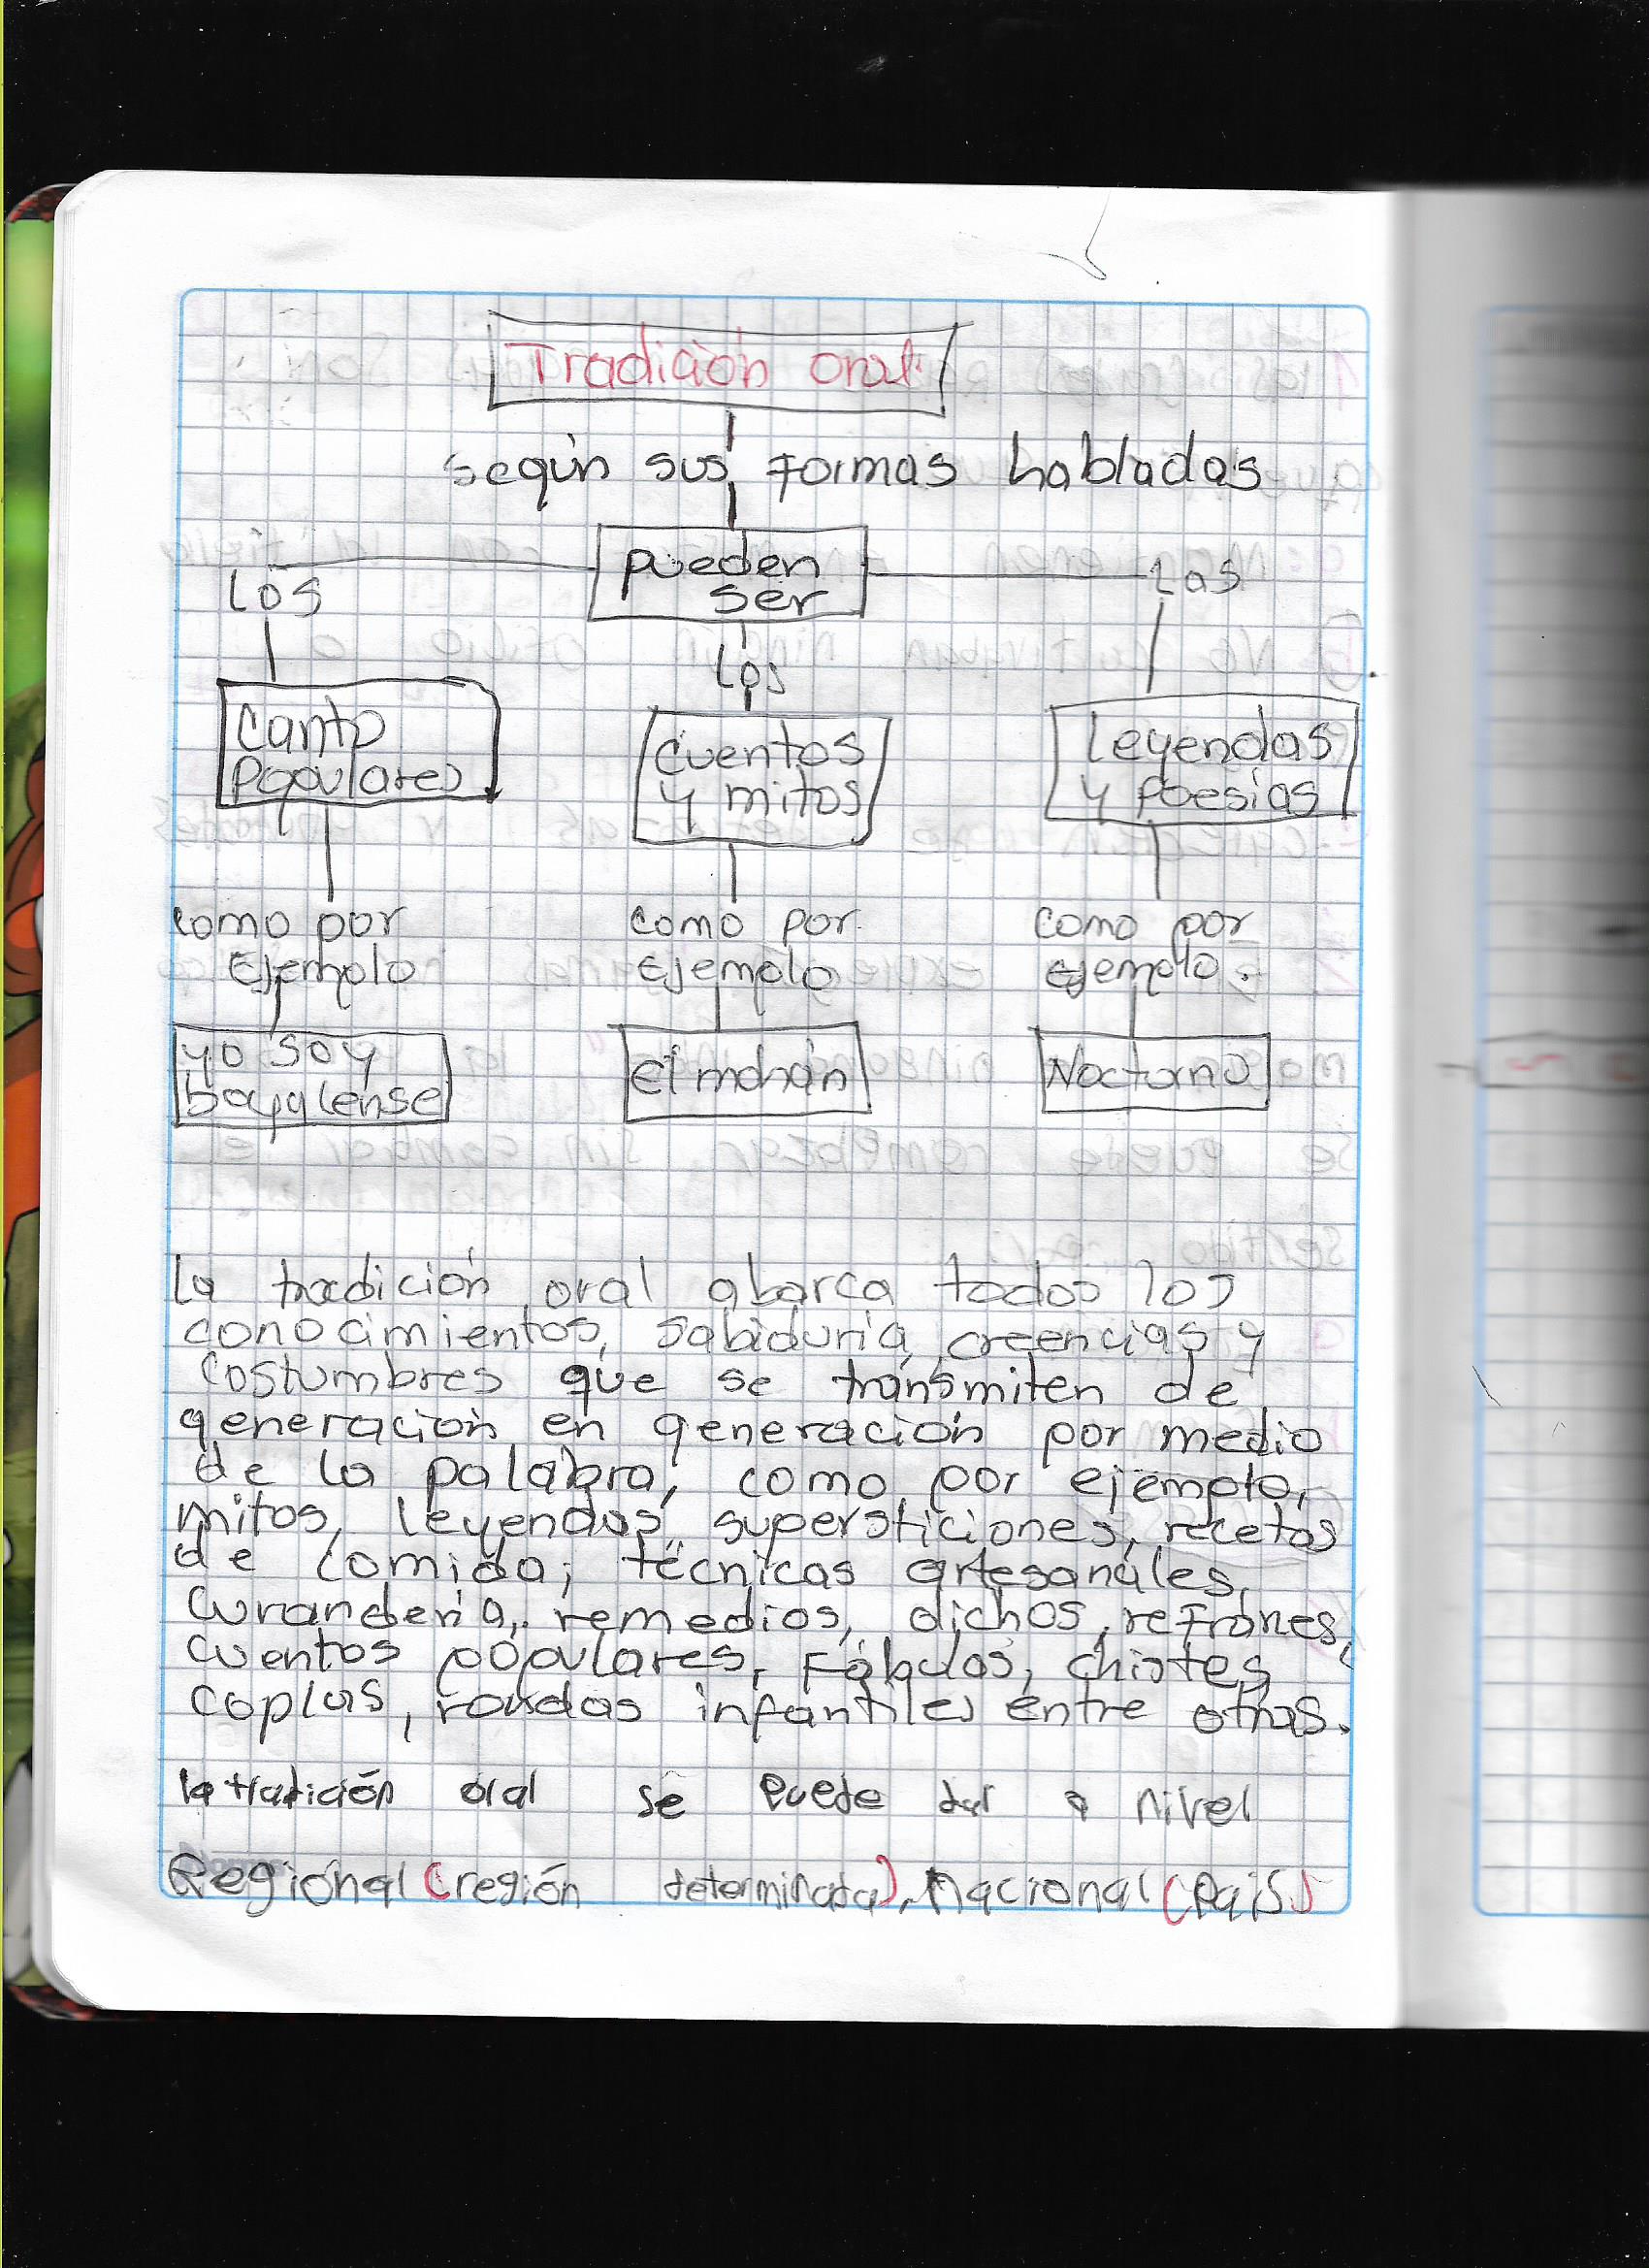 Tradición oral
según sus formas habladas
pueden
ser
Los
Los
Las
Canto
Populares
cuentos
y mitos
leyendas
y Poesías
como por
Ejemplo
como por
Ejemplo
como por
ejemplo.
yo soy
boyalense
el mohán
Nocturno
La tradición oral abarca todos los
conocimientos, sabiduría, creencias y
costumbres que se transmiten de
generación en generación por medio
de la palabra, como por ejemplo,
mitos, leyendas, supersticiones, recetas
de comida; técnicas artesanales,
curandería, remedios, dichos, refranes,
cuentos populares, Fábulas, chistes
coplas, rondas infantiles entre otras.
la tradición oral se puede dar a nivel
Regional (región determinada), Nacional (País)